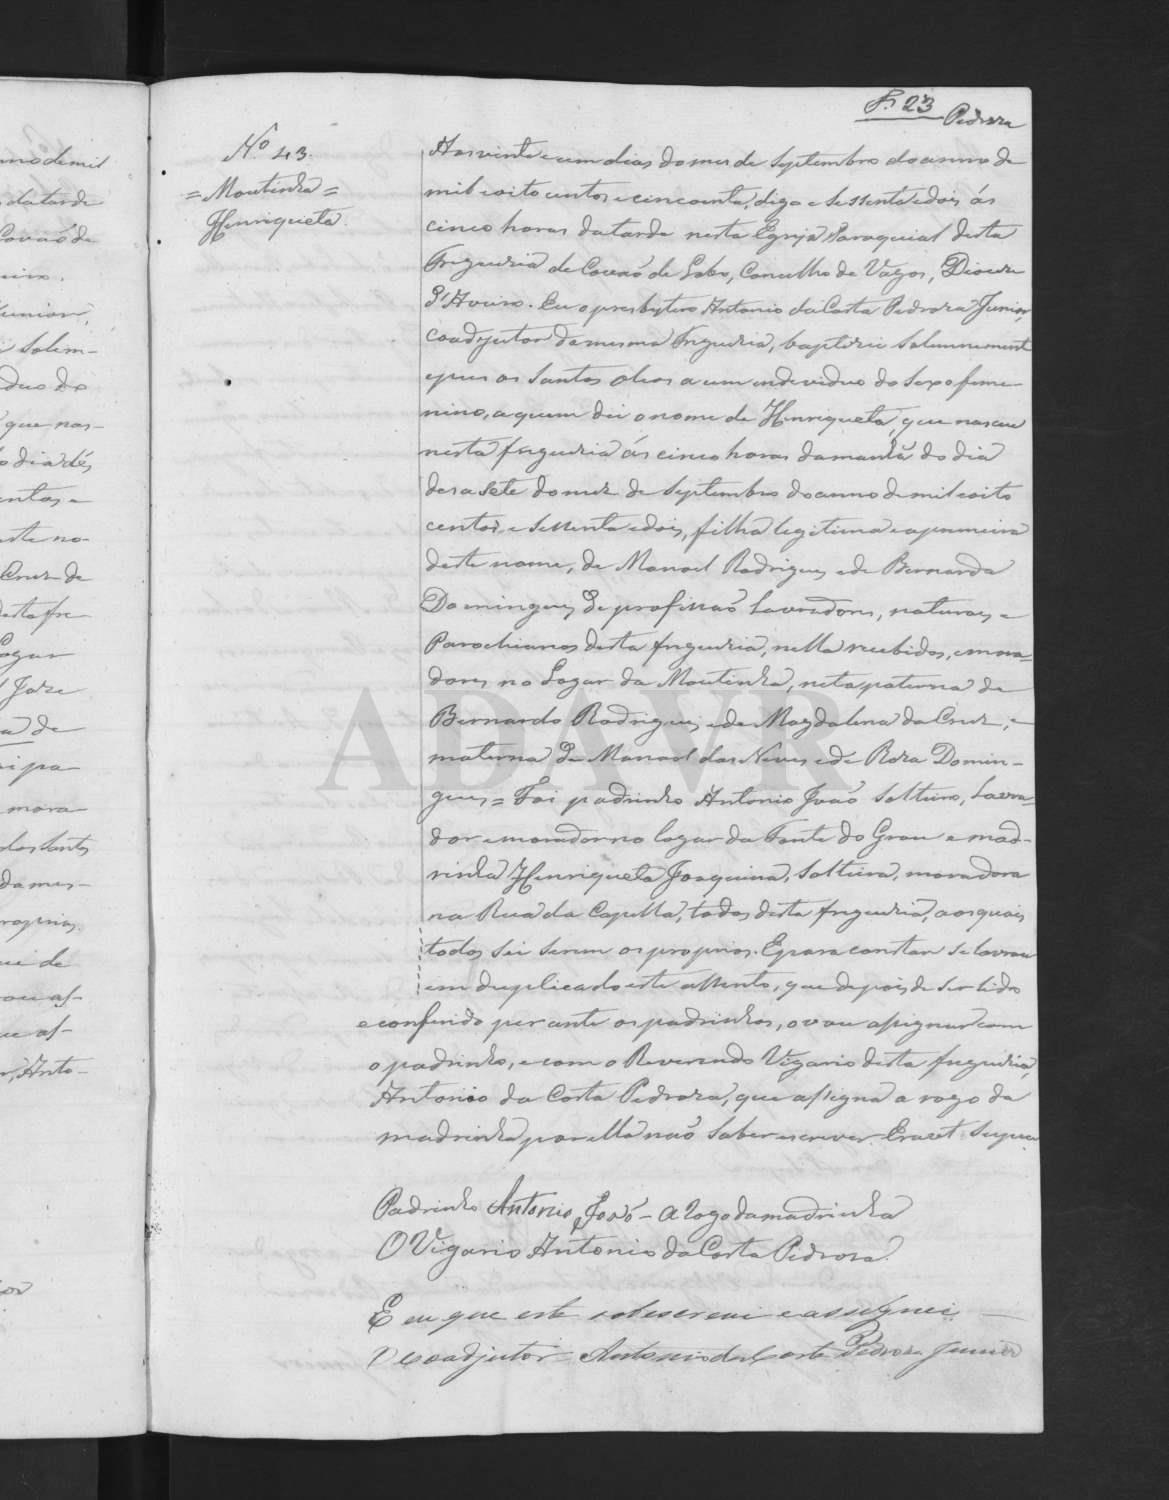 F. 23 Pedroza
Nº 43.
= Moutinha =
Henriqueta.
Aos vinte e um dias do mes de Septembro do anno de
mil eoito centos e cincoenta, digo e sessenta edois ás
cinco horas da tarde nesta Egreja Paroquial desta
Freguezia de Covaõ de Lobo, Concelho de Vagos, Diocese
d'Aveiro. Eu o presbytero Antonio da Costa Pedroza Junior,
coadjutor da mesma Freguezia, baptizei Solemnemente
e pus os Santos oleos a um individuo do Sexo feme-
nino, a quem dei o nome de Henriqueta, que nasceu
nesta freguezia ás cinco horas da manhã do dia
desasete do mez de Septembro do anno de mil eoito
centos, e sessenta edois, filha legitima e a primeira
deste nome, de Manoel Rodrigues ede Bernarda
Domingues de profissaõ Lavradores, naturaes e
Parochianos desta freguezia, nella recebidos, e mora-
dores no Logar da Moutinha, neta paterna de
Bernardo Rodrigues, ede Magdalena da Cruz, e
materna de Manoel das Neves ede Roza Domin-
gues = Foi padrinho Antonio Joaõ Solteiro, Lavra-
dor e morador no logar da Fonte do Grou e mad-
rinha Henriqueta Joaquina, Solteira, moradora
na Rua da Capella, todos desta freguezia, aos quais
todos sei serem os proprios. E para constar se lavrou
em duplicado este assento, que depois de ser lido
e conferido perante os padrinhos, o vou assignar com
o padrinho, e com o Reverendo Vigario desta freguezia,
Antonio da Costa Pedroza, que assigna a rogo da
madrinha por ella naõ Saber escrever. Era et Supra
Padrinho Antonio Joaõ - A Rogo da madrinha
O Vigario Antonio da Costa Pedroza.
E eu que este sobescrevi e assignei
O coadjutor Antonio da Costa Pedroza Junior
ADAVR